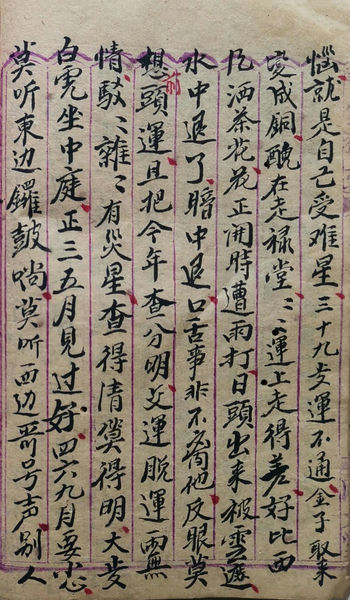 惱就是自己受难星三十九岁運不通金子取来
変成銅醜在走禄堂〻〻運上走得差好比西
瓜洒茶花花正開時遭雨打日頭出来被雲遮
水中退了暗中退口舌事非不为他反眼莫
想前頭運且把今年查分明交運脱運兩無
情駁〻雜〻有災星查得清莫得明大岁
白虎坐中庭正三五月見过好四六九月要小心
莫听東边鑼鼓响莫听西边哥号声别人